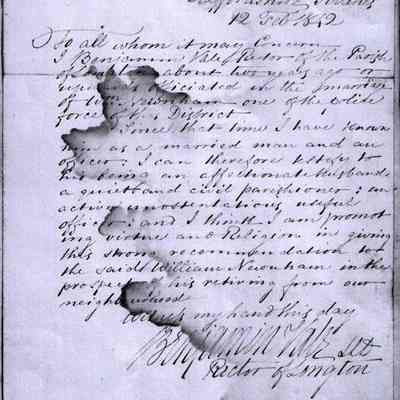 Staffordshire Potteries
12 Feb 1842
To all whom it may Concern
I Benjamin Vale Rector of the Parish
of about two years ago or
upwards officiated in the marriage
of Newnham one of the Police
force of this District
Since that time I have known
him as a married man and an
officer. I can therefore testify to
his being an affectionate Husband
a quiet and civil parishioner; an
active unostentatious useful
officer; and I think I am promot
ing virtue and Religion in giving
this strong recommendation to
the said William Newnham in the
prospect his retiring from our
neighbourhood
Witness my hand this day
Benjamin Vale
Rector of Longton